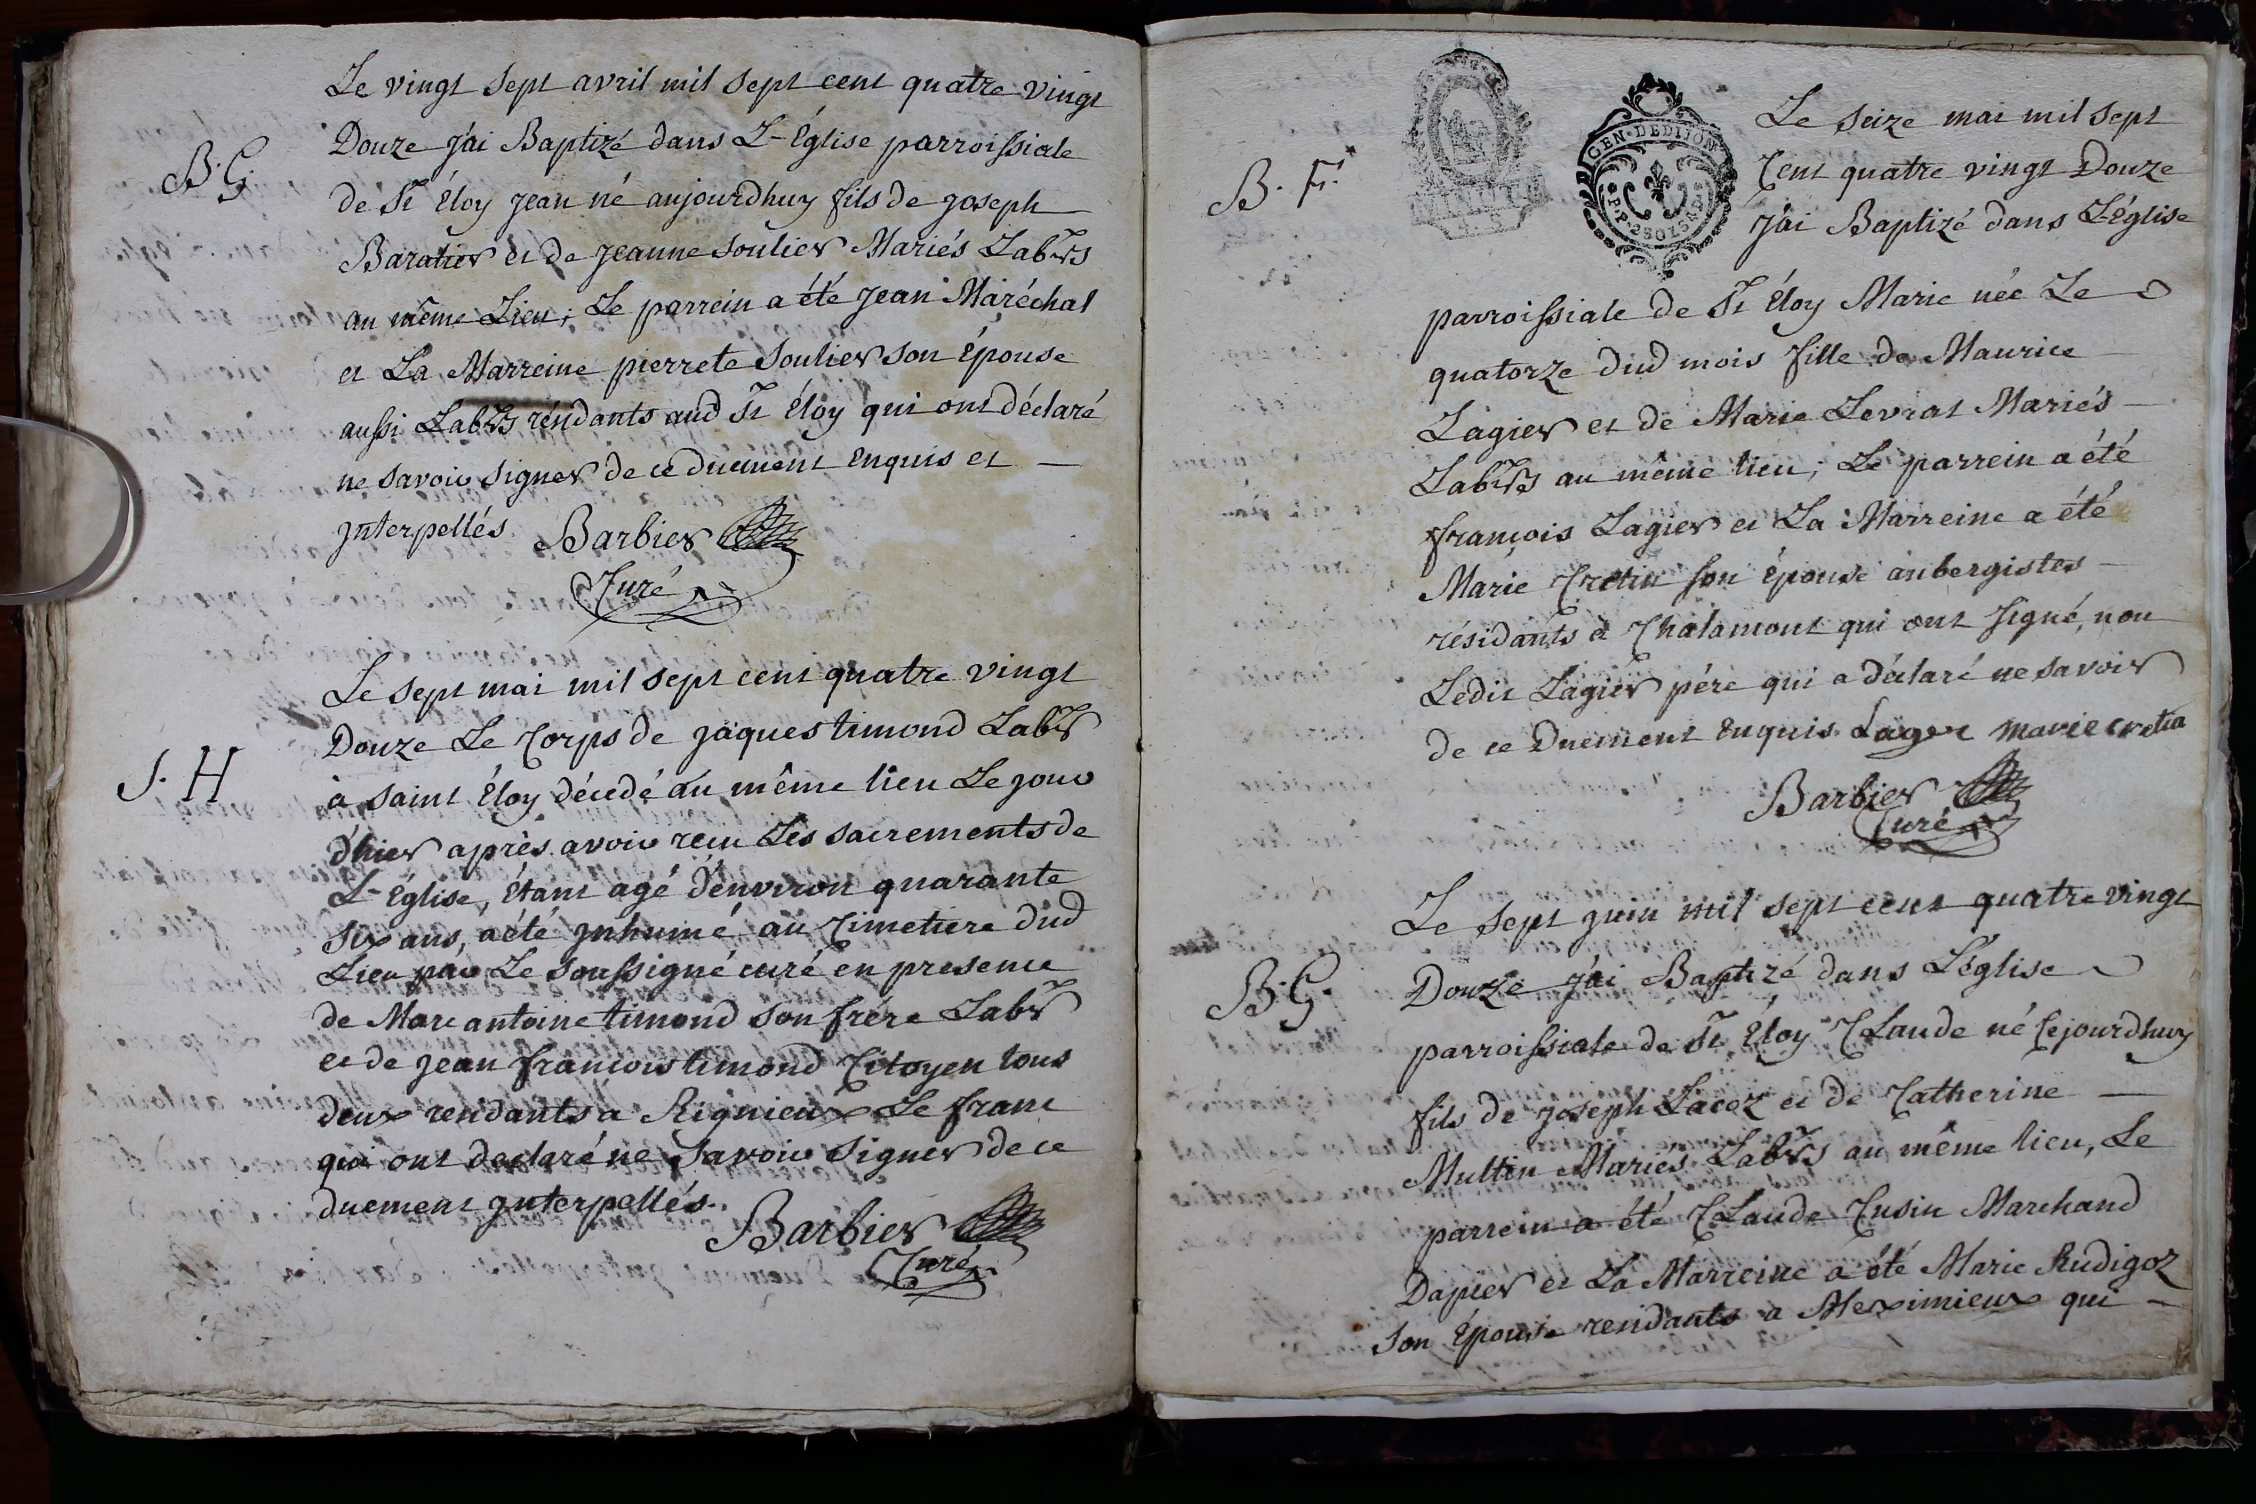 Le vingt sept avril mil sept cent quatre vingt
B. G.
Douze j'ai Baptizé dans L'Église parroissiale
de St Éloy jean né aujourdhuy fils de joseph
Baratier et de jeanne soulier Mariés Labrs
au même Lieu; Le parrein a été jean Maréchal
et La Marreine pierrete soulier son Épouse
aussi Labrs réndants aud St Éloy qui ont déclaré
ne savoir signer de ce duement Enquis et
jnterpellés. Barbier
Curé
Le sept mai mil sept cent quatre vingt
S. H
Douze Le Corps de jâques timond Labr
à saint Éloy décédé au même lieu Le jour
d'hier après avoir recu Les sacrements de
L'Église, Étant agé d'environ quarante
six ans, a été jnhumé au Cimetiere dud
Lieu par Le soussigné curé en presence
de Marc antoine timond son frére Labr
et de jean francois timond Citoyen tous
deux rendants a Rignieux Le franc
qui ont declaré ne savoir signer de ce
duement jnterpellés.
Barbier
Curé
GEN. DE DIJON
P.P. 2 SOLS 4 D.
Le seize mai mil sept
B. F.
Cent quatre vingt Douze
j'ai Baptizé dans L'église
parroissiale de St Éloy Marie née Le
quatorze dud mois fille de Maurice
Lagier et de Marie Levrat Mariés
Labrs au même lieu; Le parrein a été
françois Lagier et La Marreine a été
Marie Cretin son Épouse aubergistes
résidants a Chalamont qui ont signé, non
Ledit Lagier pére qui a déclaré ne savoir
de ce Duement Enquis. Lager marie cretin
Barbier
Curé
Le sept juin mil sept cent quatre vingt
B. G.
Douze j'ai Baptizé dans L'église
parroissiale de St Éloy CLaude né Cejourdhuy
fils de joseph Lacoz et de Catherine
Multin Mariés Labrs au même lieu, Le
parrein a été CLaude Cusin Marchand
Dapier et La Marreine a été Marie Rudigoz
son Épouse rendants a Meximieux qui